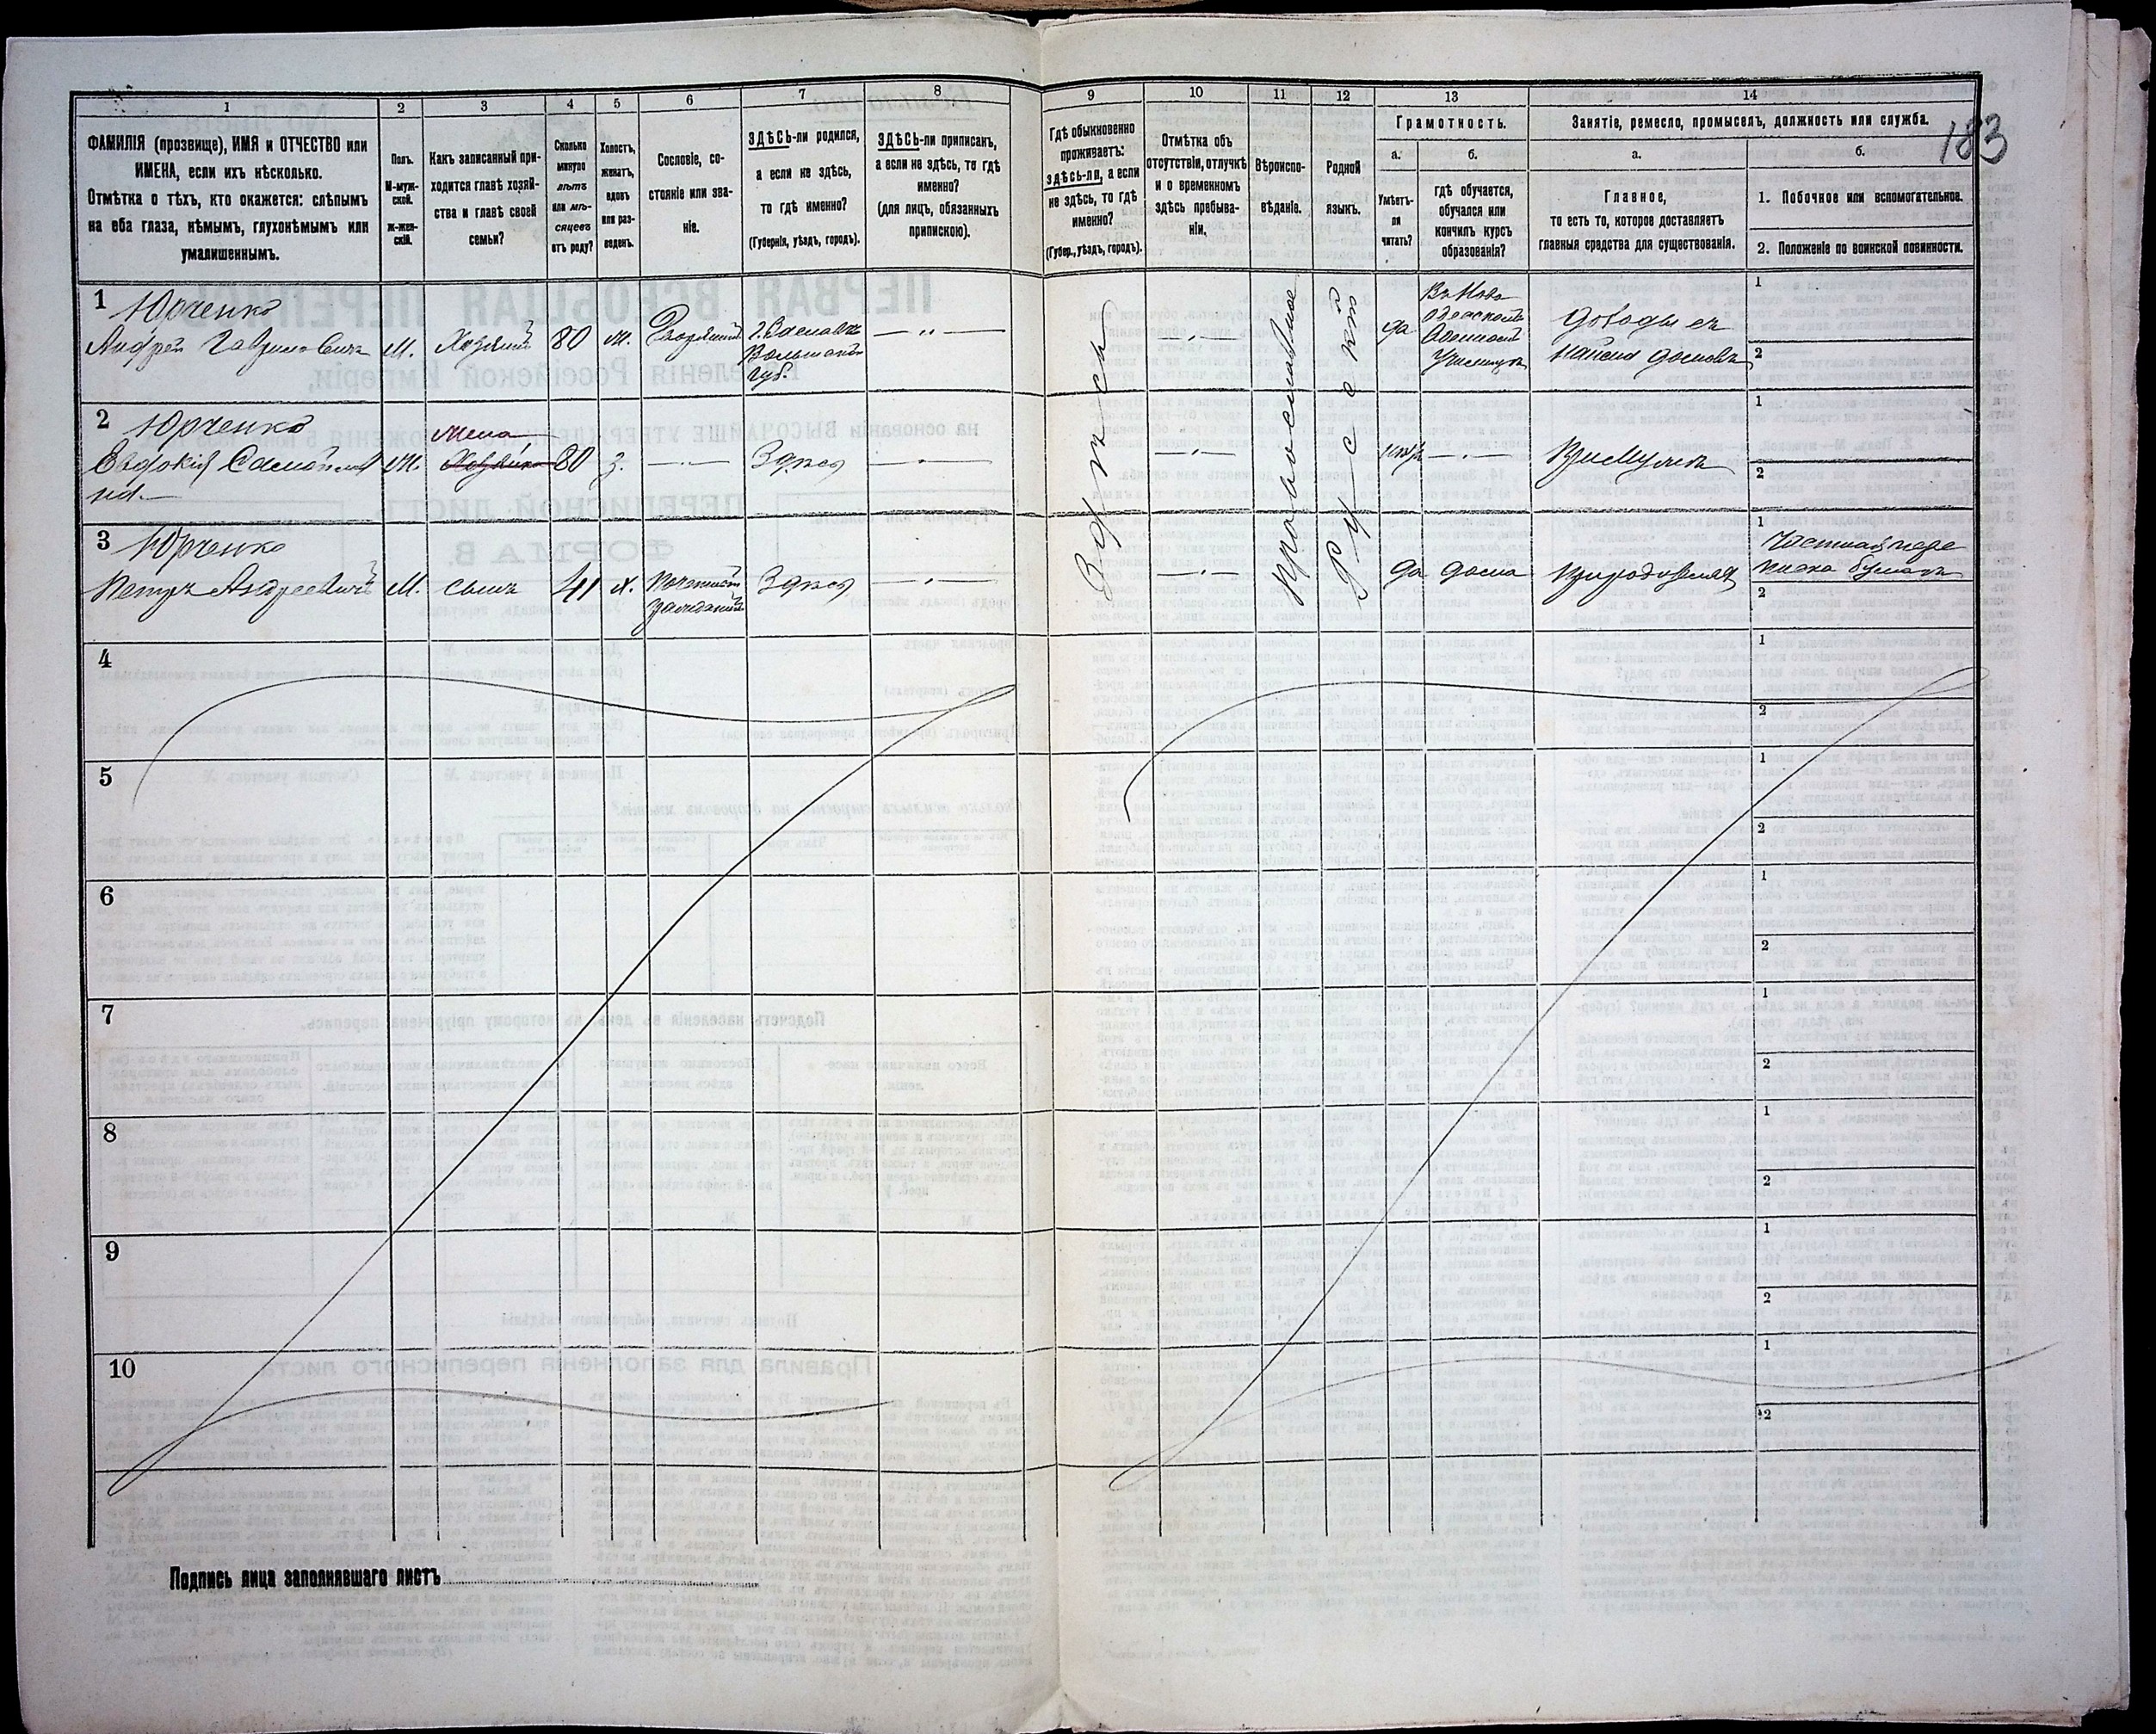 183
1
ФАМИЛІЯ (прозвище), ИМЯ и ОТЧЕСТВО или
ИМЕНА, если ихъ нѣсколько.
Отмѣтка о тѣхъ, кто окажется: слѣпымъ
на оба глаза, нѣмымъ, глухонѣмымъ или
умалишеннымъ.
2
Полъ.
М-муж-
ской.
Ж-жен-
скій.
3
Какъ записанный при-
ходится главѣ хозяй-
ства и главѣ своей
семьи?
4
Сколько
минуло
лѣтъ
или мѣ-
сяцевъ
отъ роду?
5
Холостъ,
женатъ,
вдовъ
или раз-
веденъ.
6
Сословіе, со-
стояніе или зва-
ніе.
7
ЗДѢСЬ-ли родился,
а если не здѣсь,
то гдѣ именно?
(Губернія, уѣздъ, городъ).
8
ЗДѢСЬ-ли приписанъ,
а если не здѣсь, то гдѣ
именно?
(для лицъ, обязанныхъ
припискою).
9
Гдѣ обыкновенно
проживаетъ:
здѣсь-ли, а если
не здѣсь, то гдѣ
именно?
(Губер., уѣздъ, городъ).
10
Отмѣтка объ
отсутствіи, отлучкѣ
и о временномъ
здѣсь пребыва-
ніи.
11
Вѣроиспо-
вѣданіе.
12
Родной
языкъ.
13
Грамотность.
а.
Умѣетъ-
ли
читать?
б.
гдѣ обучается,
обучался или
кончилъ курсъ
образованія?
14
Занятіе, ремесло, промыселъ, должность или служба.
а.
Главное,
то есть то, которое доставляетъ
главныя средства для существованія.
б.
1. Побочное или вспомогательное.
2. Положеніе по воинской повинности.
1
Юрченко
Андрей Гавриловичъ
М.
Хозяинъ
80
Дворянинъ
Губ.
да
доходы съ
1
2
2
Юрченко
Евдокія
жена
Хозяйка
80
з.
Здѣсь
1
2
3
Юрченко
Петръ Андреевичъ
М.
сынъ
41
х.
Здѣсь
да
дома
1
Частная пере
писка бумагъ
2
Здѣсь
Православное
Русскій
4
1
2
5
1
2
6
1
2
7
1
2
8
1
2
9
1
2
10
1
2
Подпись лица заполнявшаго листъ